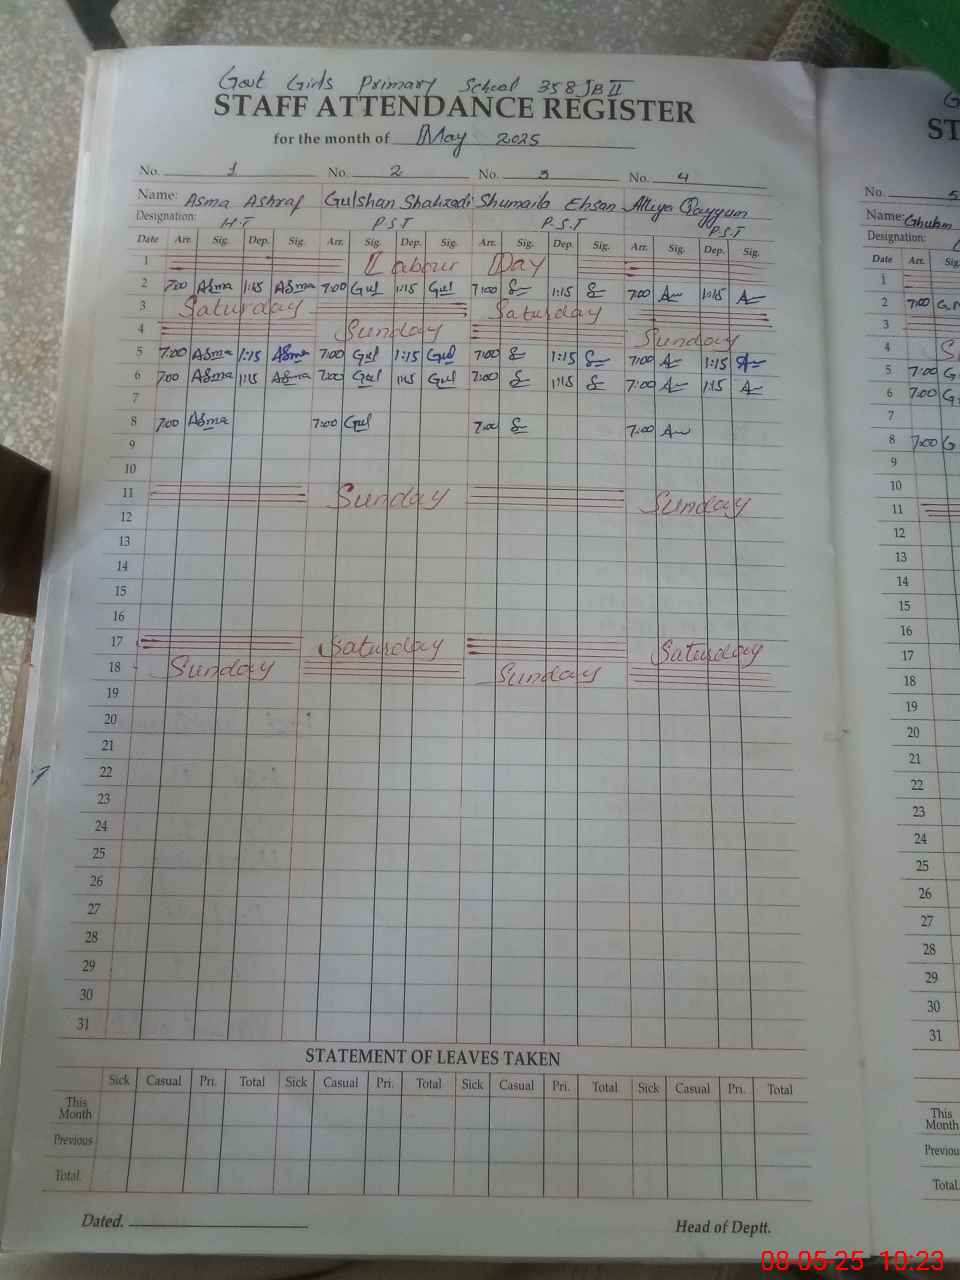 Govt Girls Primary School 358 JB II
STAFF ATTENDANCE REGISTER
for the month of May 2025
No. 1 No. 2 No. 3 No. 4
Name: Asma Ashraf Gulshan Shahzadi Shumaila Ehsan Atiya Qayyum
Designation: H.T P.S.T P.S.T P.S.T
Date Arr. Sig. Dep. Sig. Arr. Sig. Dep. Sig. Arr. Sig. Dep. Sig. Arr. Sig. Dep. Sig.
1 Labour Day
2 7:00 Asma 1:15 Asma 7:00 Gul 1:15 Gul 7:00 1:15 7:00 1:15
3 Saturday Saturday
4 Sunday Sunday
5 7:00 Asma 1:15 Asma 7:00 Gul 1:15 Gul 7:00 1:15 7:00 1:15
6 7:00 Asma 1:15 Asma 7:00 Gul 1:15 Gul 7:00 1:15 7:00 1:15
7
8 7:00 Asma 7:00 Gul 7:00 7:00
9
10
11 Sunday Sunday
12
13
14
15
16
17 Saturday Saturday
18 Sunday Sunday
19
20
21
22
23
24
25
26
27
28
29
30
31
STATEMENT OF LEAVES TAKEN
Sick Casual Pri. Total Sick Casual Pri. Total Sick Casual Pri. Total Sick Casual Pri. Total
This Month
Previous
Total.
Dated. Head of Deptt.
ST
No. 5
Name:
Designation:
Date Arr. Sig.
1
2 7:00
3
4
5 7:00
6 7:00
7
8 7:00
9
10
11
12
13
14
15
16
17
18
19
20
21
22
23
24
25
26
27
28
29
30
31
This Month
Previou
Total.
08-05-25 10:23